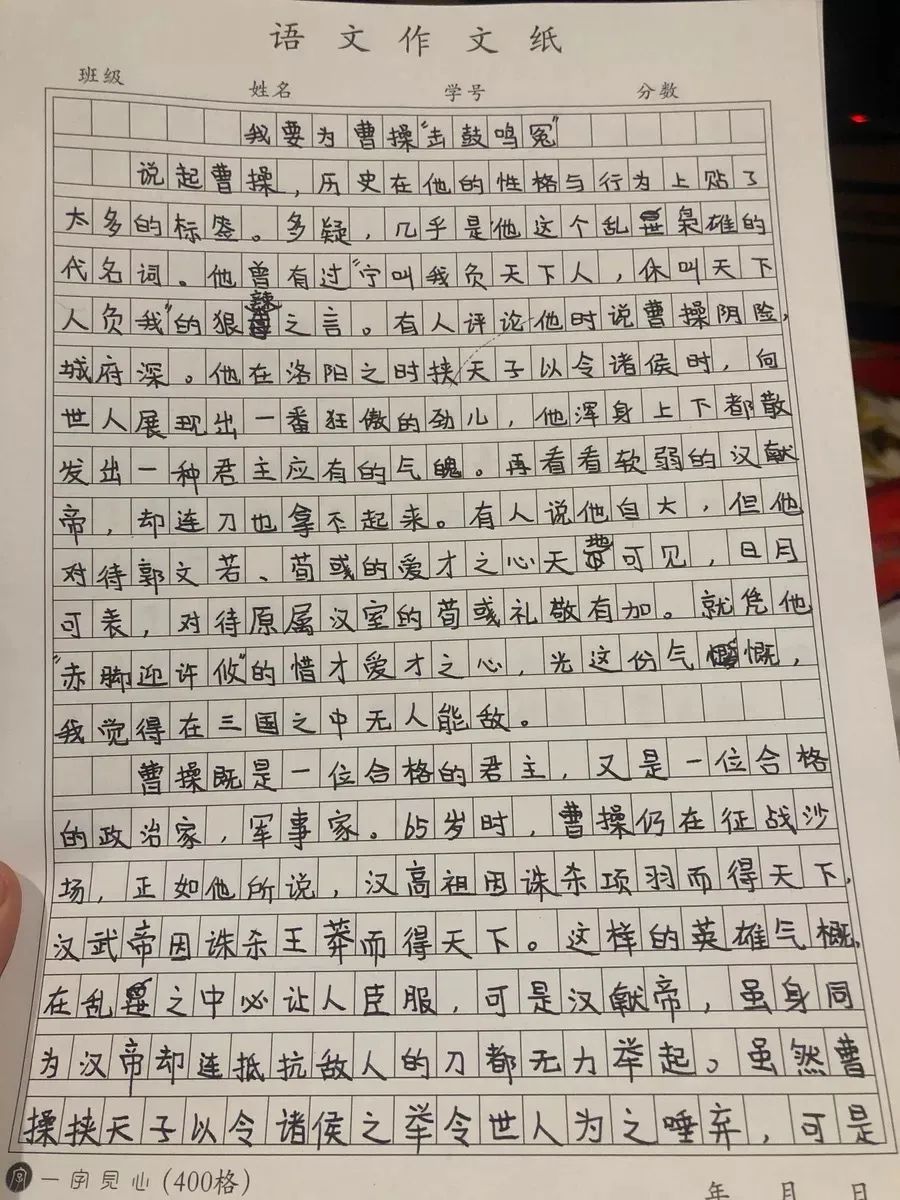 语文作文纸
班级 姓名 学号 分数
我要为曹操“击鼓鸣冤”
说起曹操，历史在他的性格与行为上贴了
太多的标签。多疑，几乎是他这个乱世枭雄的
代名词。他曾有过“宁叫我负天下人，休叫天下
人负我”的狠辣之言。有人评论他时说曹操阴险，
城府深。他在洛阳之时挟天子以令诸侯时，向
世人展现出一番狂傲的劲儿，他浑身上下都散
发出一种君主应有的气魄。再看看软弱的汉献
帝，却连刀也拿不起来。有人说他自大，但他
对待郭文若、荀彧的爱才之心天地可见，日月
可表，对待原属汉室的荀彧礼敬有加。就凭他
“赤脚迎许攸”的惜才爱才之心，光这份气慨，
我觉得在三国之中无人能敌。
曹操既是一位合格的君主，又是一位合格
的政治家，军事家。65岁时，曹操仍在征战沙
场，正如他所说，汉高祖因诛杀项羽而得天下，
汉武帝因诛杀王莽而得天下。这样的英雄气概，
在乱世之中必让人臣服，可是汉献帝，虽身同
为汉帝却连抵抗敌人的刀都无力举起。虽然曹
操挟天子以令诸侯之举令世人为之唾弃，可是
一字见心(400格)
年 月 日